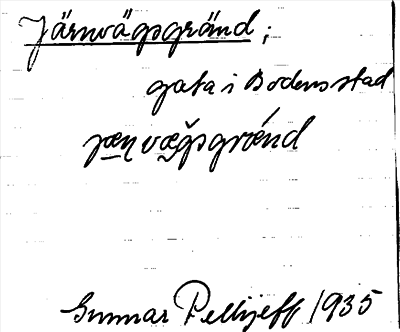 Järnvägsgränd;
gata i Bodens stad
jæ̲ɳvæ̲̆gsgrǽnd
Gunnar Pellijeff 1935